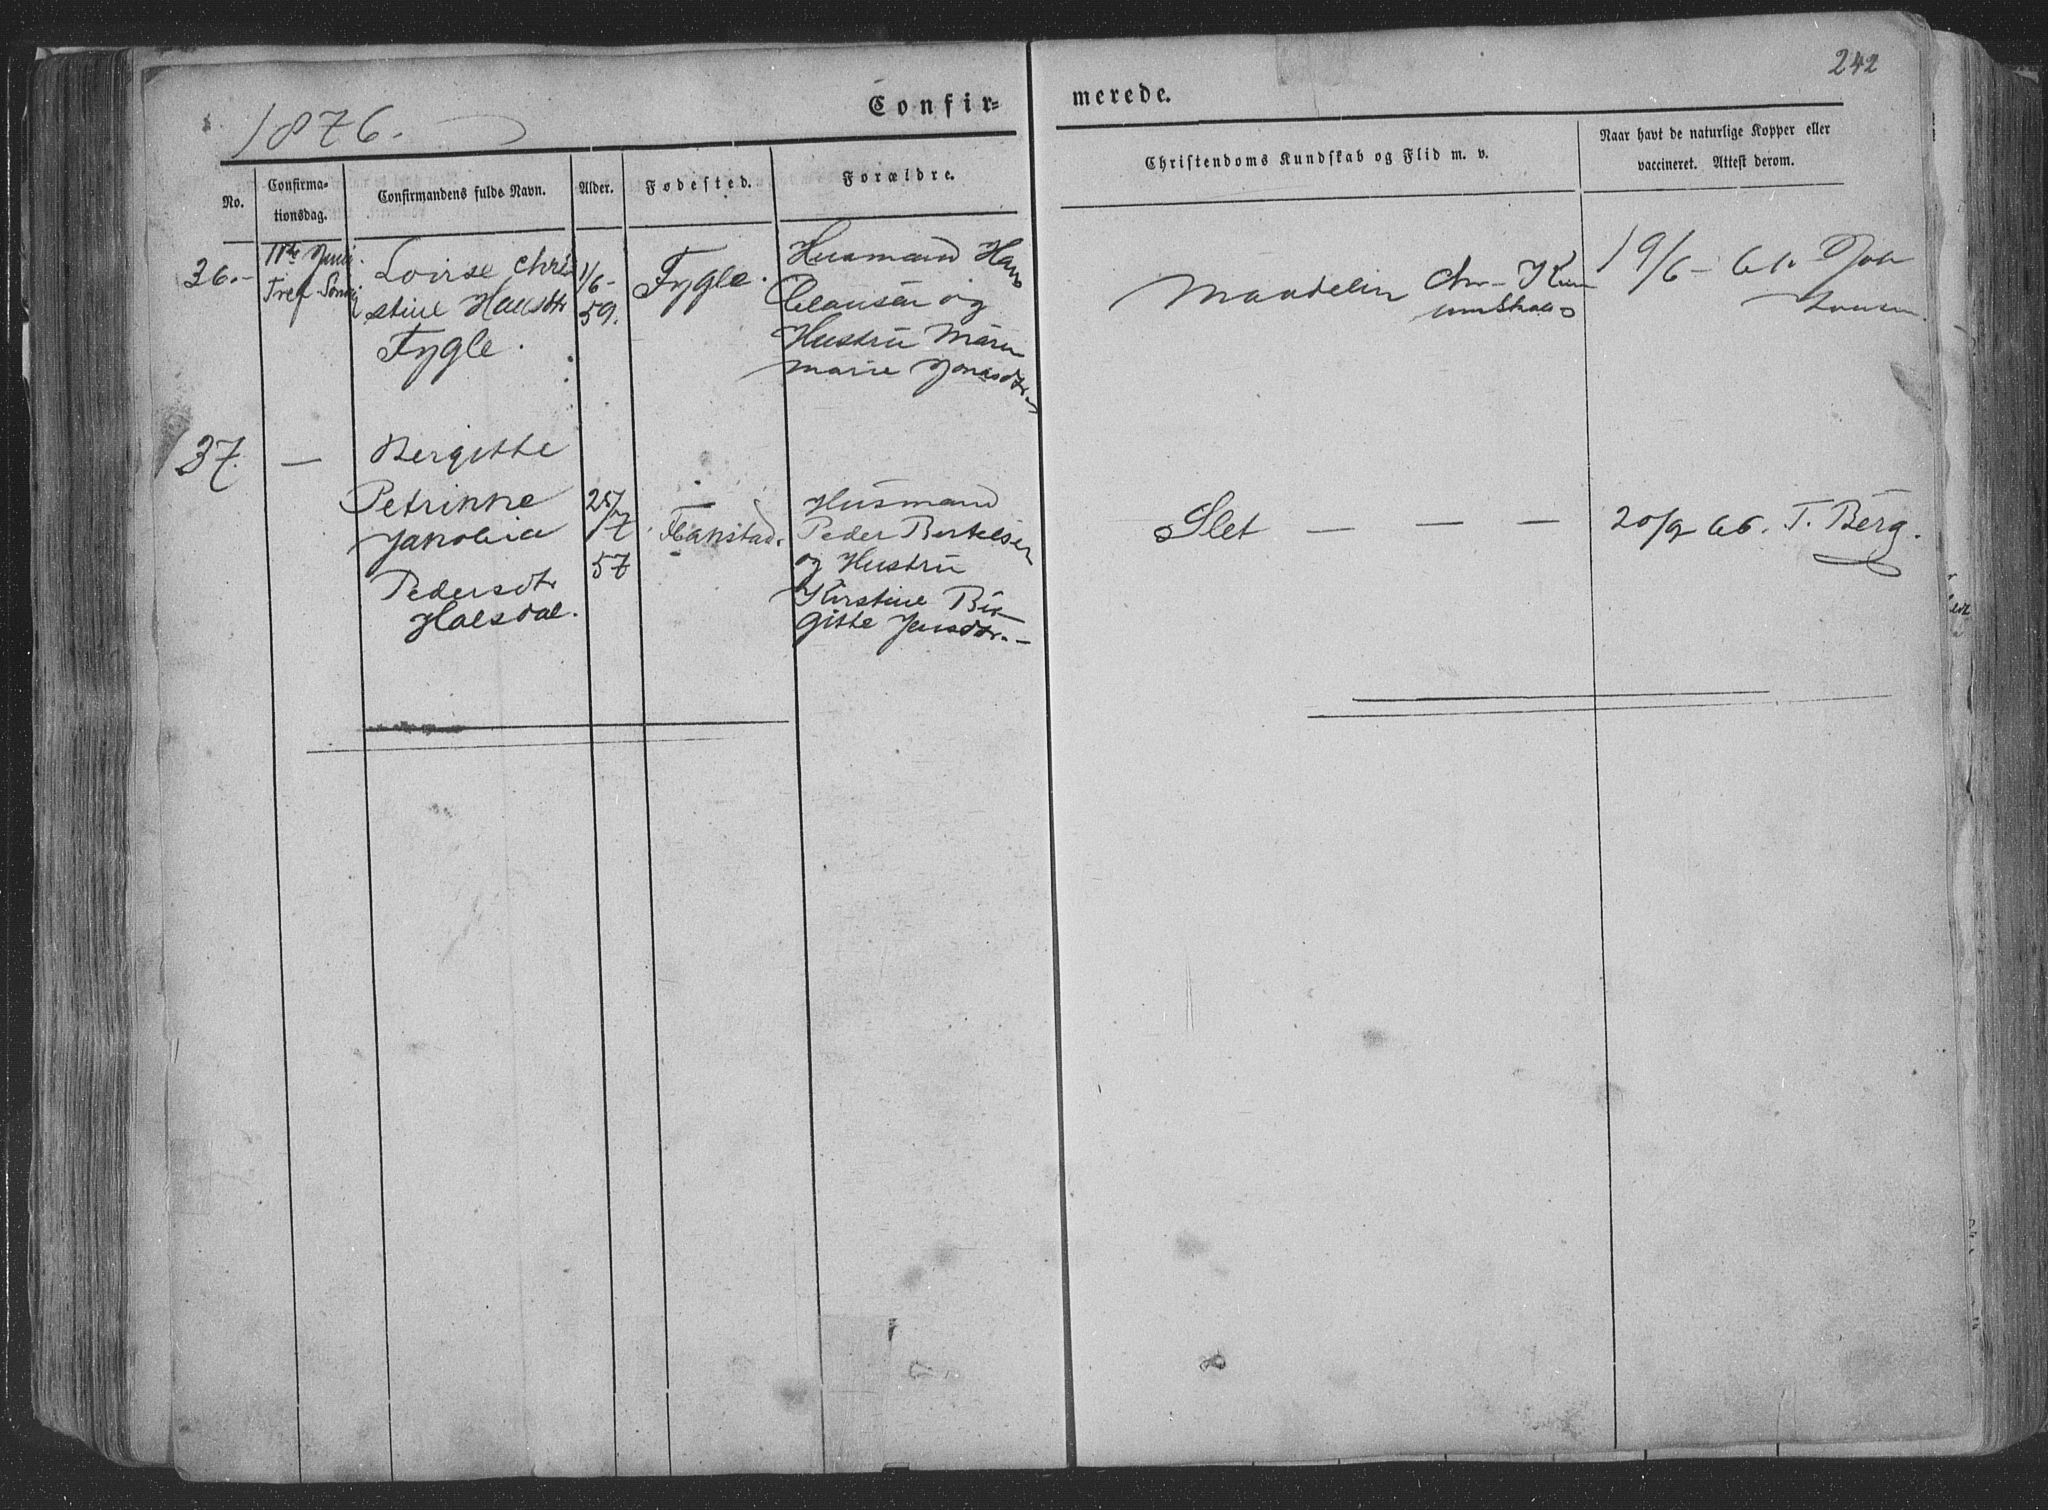 242
1876.
Confir=
merede.
No.
Confirma-
tionsdag.
Confirmandens fulde Navn.
Alder.
Fødested.
Forældre.
Christendoms Kundskab og Flid m. v.
Naar havt de naturlige Kopper eller
vaccineret. Attest derom.
36.-
11te Juni
Tref. Sønd
Lovise Chri
stine Hansdtr
Fygle.
1/6-
59.
Fygle.
Husmand Hans
Clausen og
Hustru Maren
Marie Jonasdtr.
Maadelig Chr- Kun
19/6 - 61.
37.
—
Bergitte
Petrinne
Jakobia
Pedersdtr
Holsdal.
25/7
57
Hanstad.
Husmand
Peder Bertelsen
og Hustru
Kirstine Bir
gitte Jensdtr.-
Slet — — —
20/9 66. T. Berg.